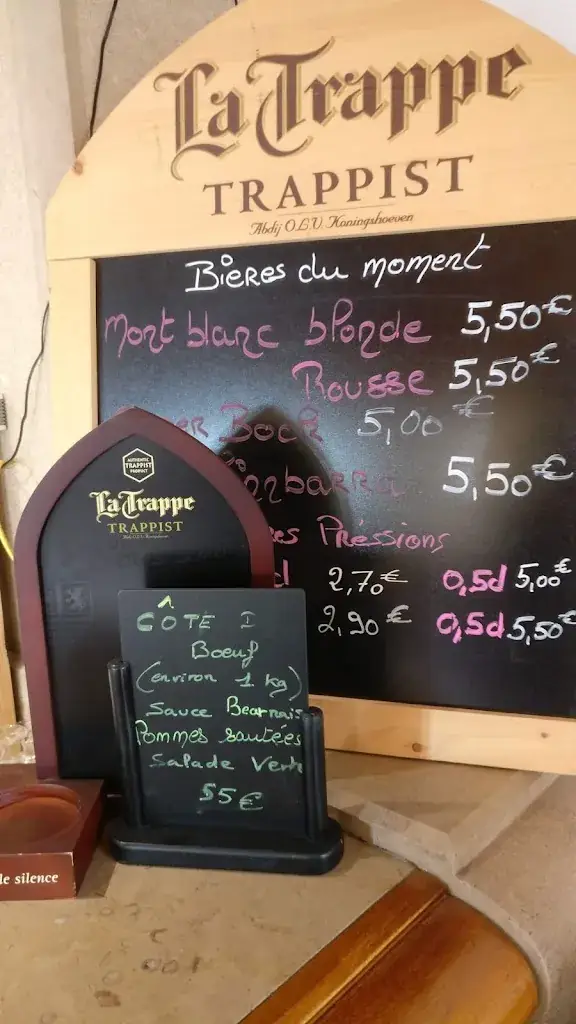 La Trappe
TRAPPIST
Abdij O.L.V. Koningshoeven
Bières du moment
Mont blanc blonde 5,50€
Rousse 5,50€
Bock 5,00€
5,50€
Pressions
2,70€ 0,5d 5,00€
2,90€ 0,5d 5,50€
AUTHENTIC
TRAPPIST
PRODUCT
La Trappe
TRAPPIST
CÔTE
Boeuf
(environ 1 kg)
Sauce Bearnais
Pommes sautées
Salade Verte
55€
le silence